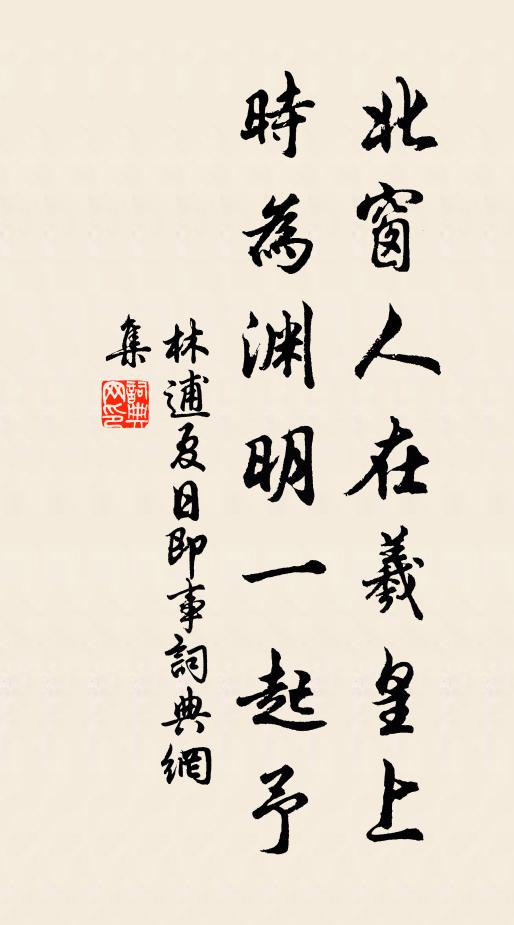 北窗人在羲皇上
時為渊明一起予
林逋夏日即事詞典網
集
詞典网印